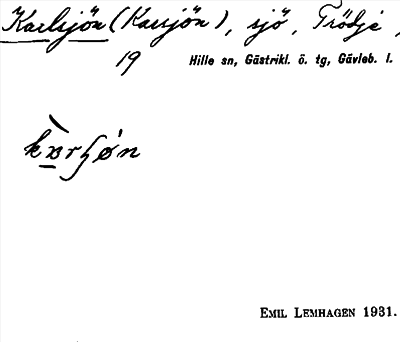 Karlsjön (Karsjön), sjö, Trödje,
19 Hille sn, Gästrikl. ö. tg, Gävleb. l.
EMIL LEMHAGEN 1931.